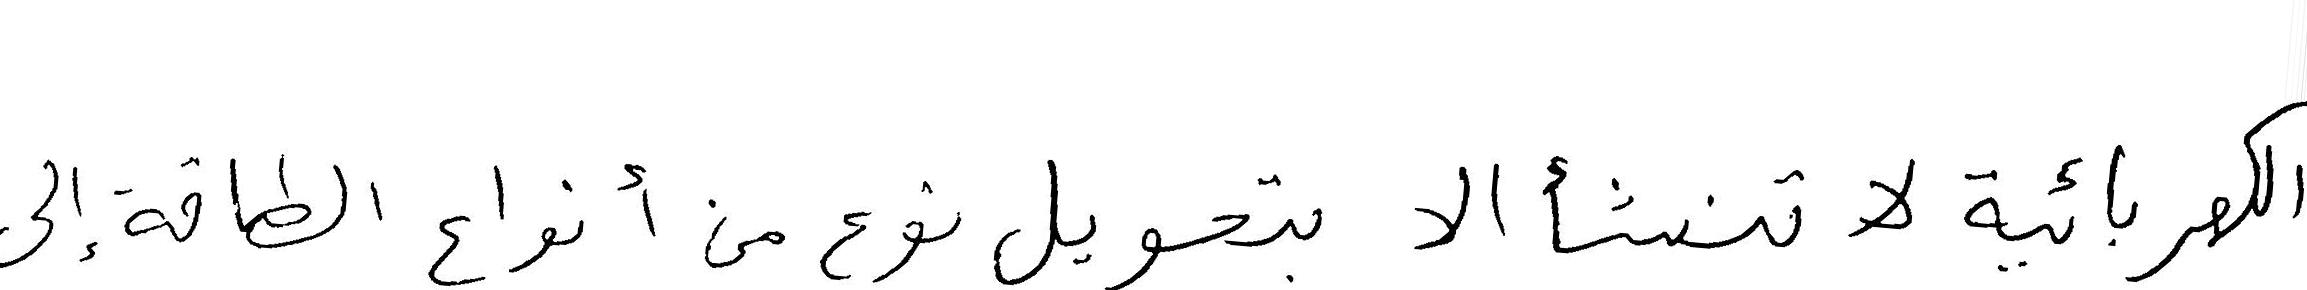 الكهربائية لا تنشأ الا بتحويل نوع من أنواع الطاقة إلى